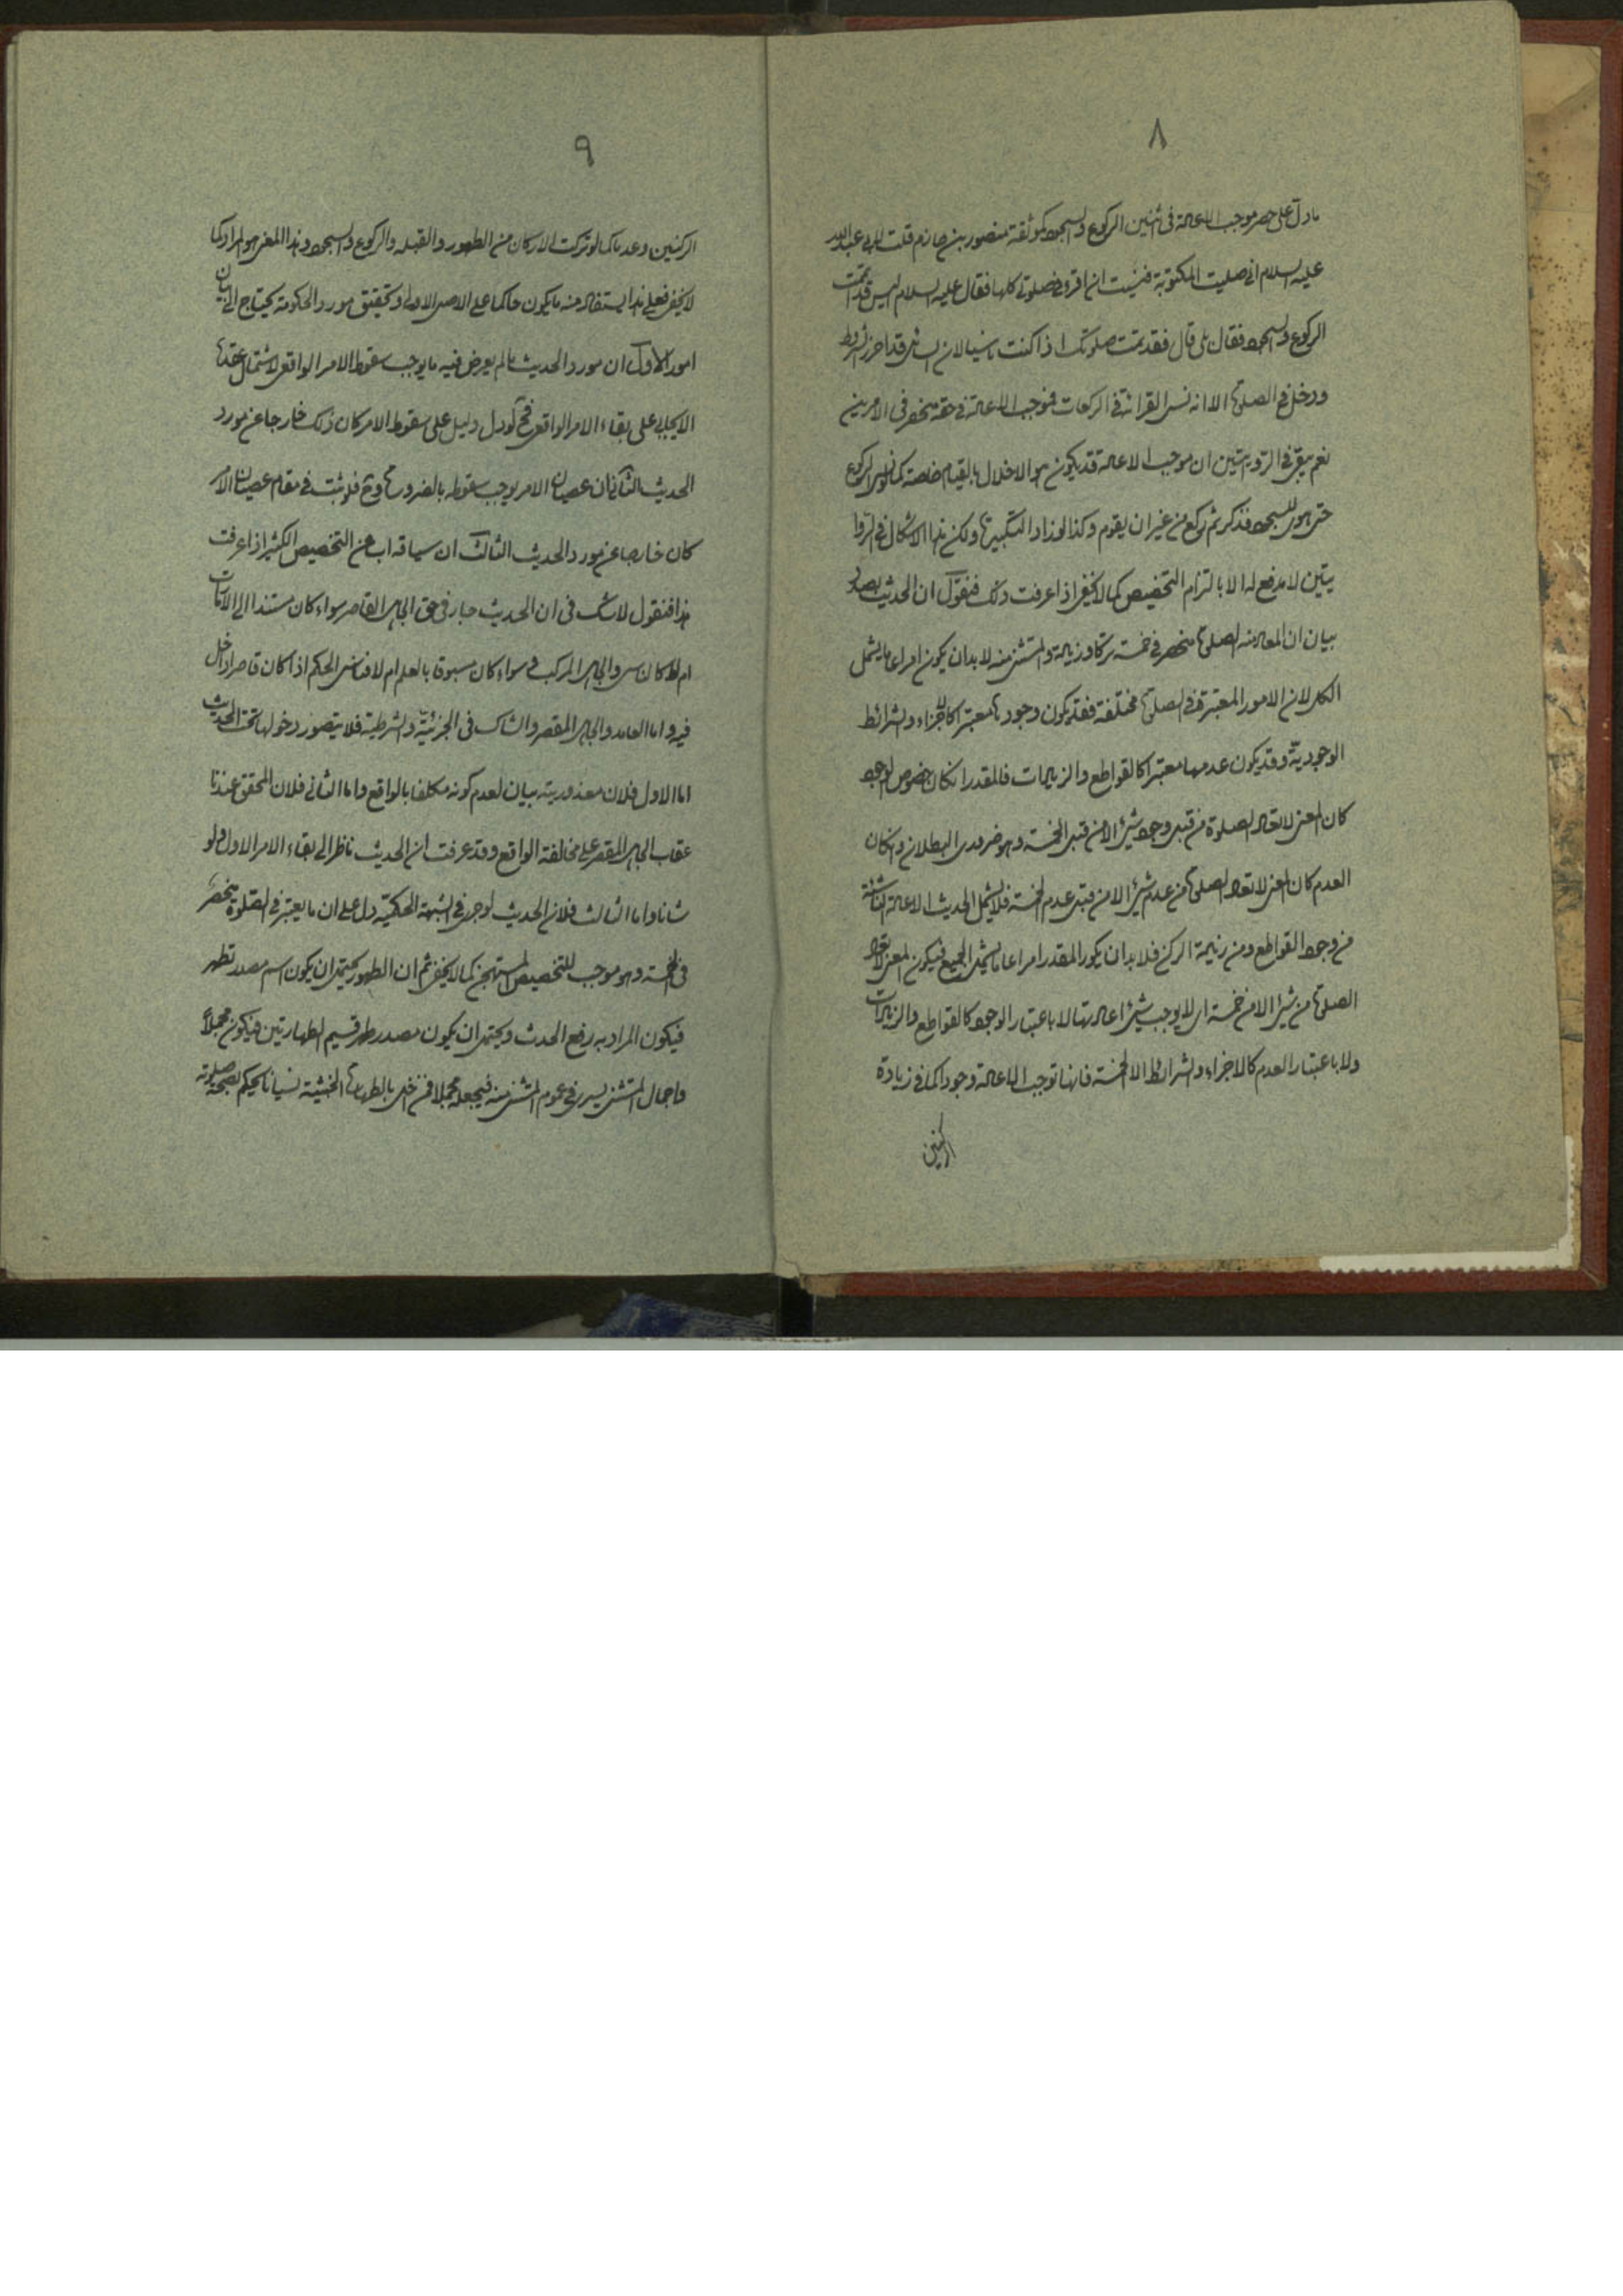 ٨
ما دل على حصر موجب الاعادة فى اثنين الركوع والسجود كموثقة منصور بن حازم قلت لابى عبد الله
عليه السلام انى صليت المكتوبة فنسيت ان اقرء فى صلوتى كلها فقال عليه السلام اليس قد اتممت
الركوع والسجود فقال بلى قال فقد تمت صلوتك اذا كنت ناسيا لان الناسى قد احرز الشروط
ودخل فى الصلوة الا انه نسى القرائة فى الركعات فموجب الاعادة فى حقه منحصر فى الامرين
نعم يبقى فى الروايتين ان موجب الاعادة قد يكون هو الاخلال بالقيام خاصة كما لو نسى الركوع
حتى هوى للسجود فذكر ثم ركع من غير ان يقوم وكذا لو زاد التكبيرة ولكن هذا الاشكال فى الروا
يتين لا مدفع له الا بالتزام التخصيص كما لا يخفى اذا عرفت ذلك فنقول ان الحديث بصدد
بيان ان المعاد منه الصلوة منحصر فى خمسة تركا وزيادة والمستثنى منه لا بد ان يكون امرا عاما يشمل
الكل لان الامور المعتبرة فى الصلوة مختلفة فقد يكون وجودها معتبرا كالاجزاء والشرائط
الوجودية وقد يكون عدمها معتبرا كالقواطع والزيادات فالمقدر ان كان خصوص الوجود
كان المعنى لا تعاد الصلوة من قبل وجود شىء الا من قبل الخمسة وهو ضرورى البطلان وان كان
العدم كان المعنى لا تعاد الصلوة من عدم شىء الا من قبل عدم الخمسة فلا يشمل الحديث الاعادة الناشئة
من وجود القواطع ومن زيادة الركن فلا بد ان يكون المقدر امرا عاما يشمل الجميع فيكون المعنى لا تعاد
الصلوة من شىء الا من خمسة اى لا يوجب شىء اعادتها لا باعتبار الوجود كالقواطع والزيادات
ولا باعتبار العدم كالاجزاء والشرائط الا الخمسة فانها توجب الاعادة وجودا كما فى زيادة
الركنين
٩
الركنين وعدما كما لو تركت الاركان من الطهور والقبلة والركوع والسجود وهذا المعنى هو المراد كما
لا يخفى فعلى هذا يستفاد منه ما يكون حاكما على الاصل الاولى وتحقيق مورد الحكومة يحتاج الى بيان
امور الاول ان مورد الحديث ما لم يعرض فيه ما يوجب سقوط الامر الواقعى لاشتمال عقده
الايجابى على بقاء الامر الواقعى فح لو دل دليل على سقوط الامر كان ذلك خارجا عن مورد
الحديث الثانى ان عصيان الامر يوجب سقوطه بالضرورة وح فلو ثبت فى مقام عصيان الامر
كان خارجا عن مورد الحديث الثالث ان سياقه اب عن التخصيص الكثير اذا عرفت
هذا فنقول لا شك فى ان الحديث جار فى حق الجاهل القاصر سواء كان مستندا الى الامارات
ام لا كالناسى والجاهل المركب سواء كان مسبوقا بالعلم ام لا فناسى الحكم اذا كان قاصرا داخل
فيه واما العامد والجاهل المقصر والشاك فى الجزئية والشرطية فلا يتصور دخولها تحت الحديث
اما الاول فلان معذوريته بيان لعدم كونه مكلفا بالواقع واما الثانى فلان المحقق عندنا
عقاب الجاهل المقصر على مخالفة الواقع وقد عرفت ان الحديث ناظر الى بقاء الامر الاول ولو
شانا واما الثالث فلان الحديث لو جرى فى الشبهة الحكمية دل على ان ما يعتبر فى الصلوة منحصر
فى الخمسة وهو موجب للتخصيص المستهجن كما لا يخفى ثم ان الطهور يحتمل ان يكون اسم مصدر تطهر
فيكون المراد به رفع الحدث ويحتمل ان يكون مصدر طهر قسيم الطهارتين فيكون مجملا
واجمال المستثنى يسرى فى عموم المستثنى منه فيجعله مجملا فمن اخل بالطهارة الخبثية نسيانا يحكم بصحة صلوته